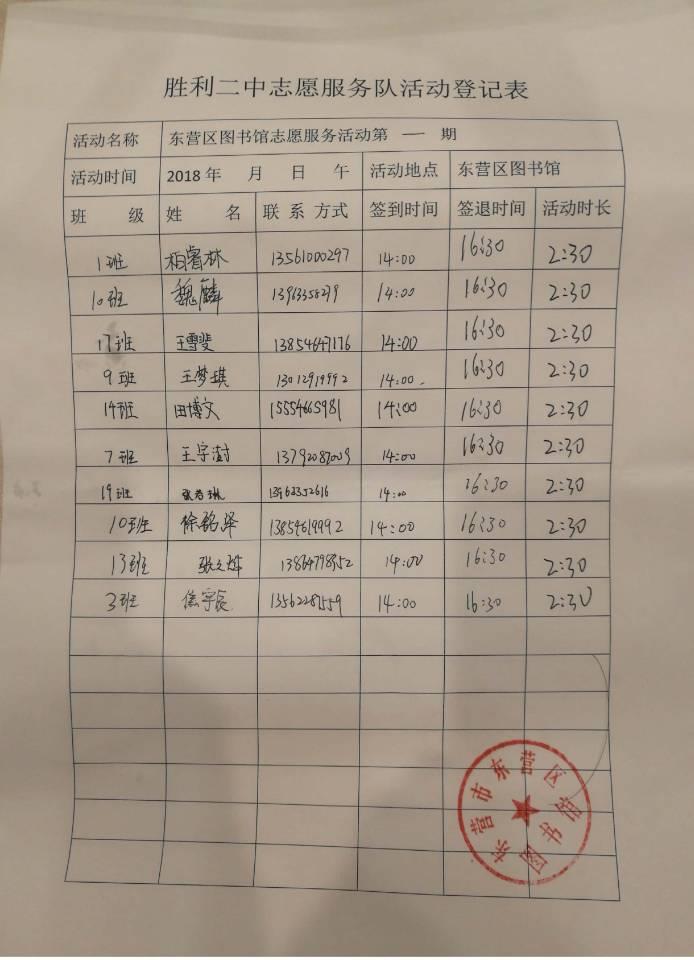 胜利二中志愿服务队活动登记表
活动名称 东营区图书馆志愿服务活动第 一 期
活动时间 2018 年 月 日 午 活动地点 东营区图书馆
班 级 姓 名 联 系 方式 签到时间 签退时间 活动时长
1班 柏睿林 13561000297 14:00 16:30 2:30
10班 魏麟 14:00 16:30 2:30
17班 王雪斐 13854647176 14:00 16:30 2:30
9班 王梦琪 13012919992 14:00 16:30 2:30
14班 田博文 15554665981 14:00 16:30 2:30
7班 王宇澍 14:00 16:30 2:30
19班 13963352616 14:00 16:30 2:30
10班 徐铭泽 13854619992 14:00 16:30 2:30
13班 14:00 16:30 2:30
3班 焦宇辰 14:00 16:30 2:30
东营市东营区图书馆